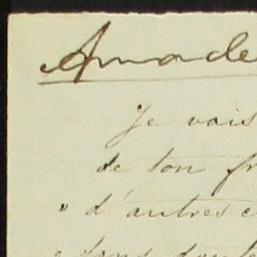 Amade
Je vais
de ton fr
" d'autres c
dans